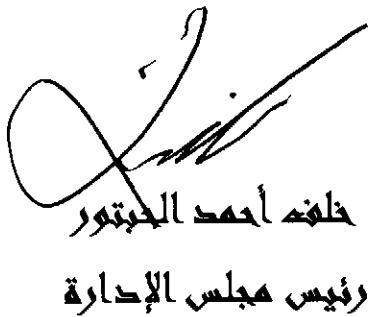 خلف أحمد الحبتور
رئيس مجلس الإدارة